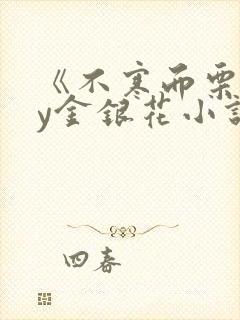 《不寒而栗
y金银花小说
四春